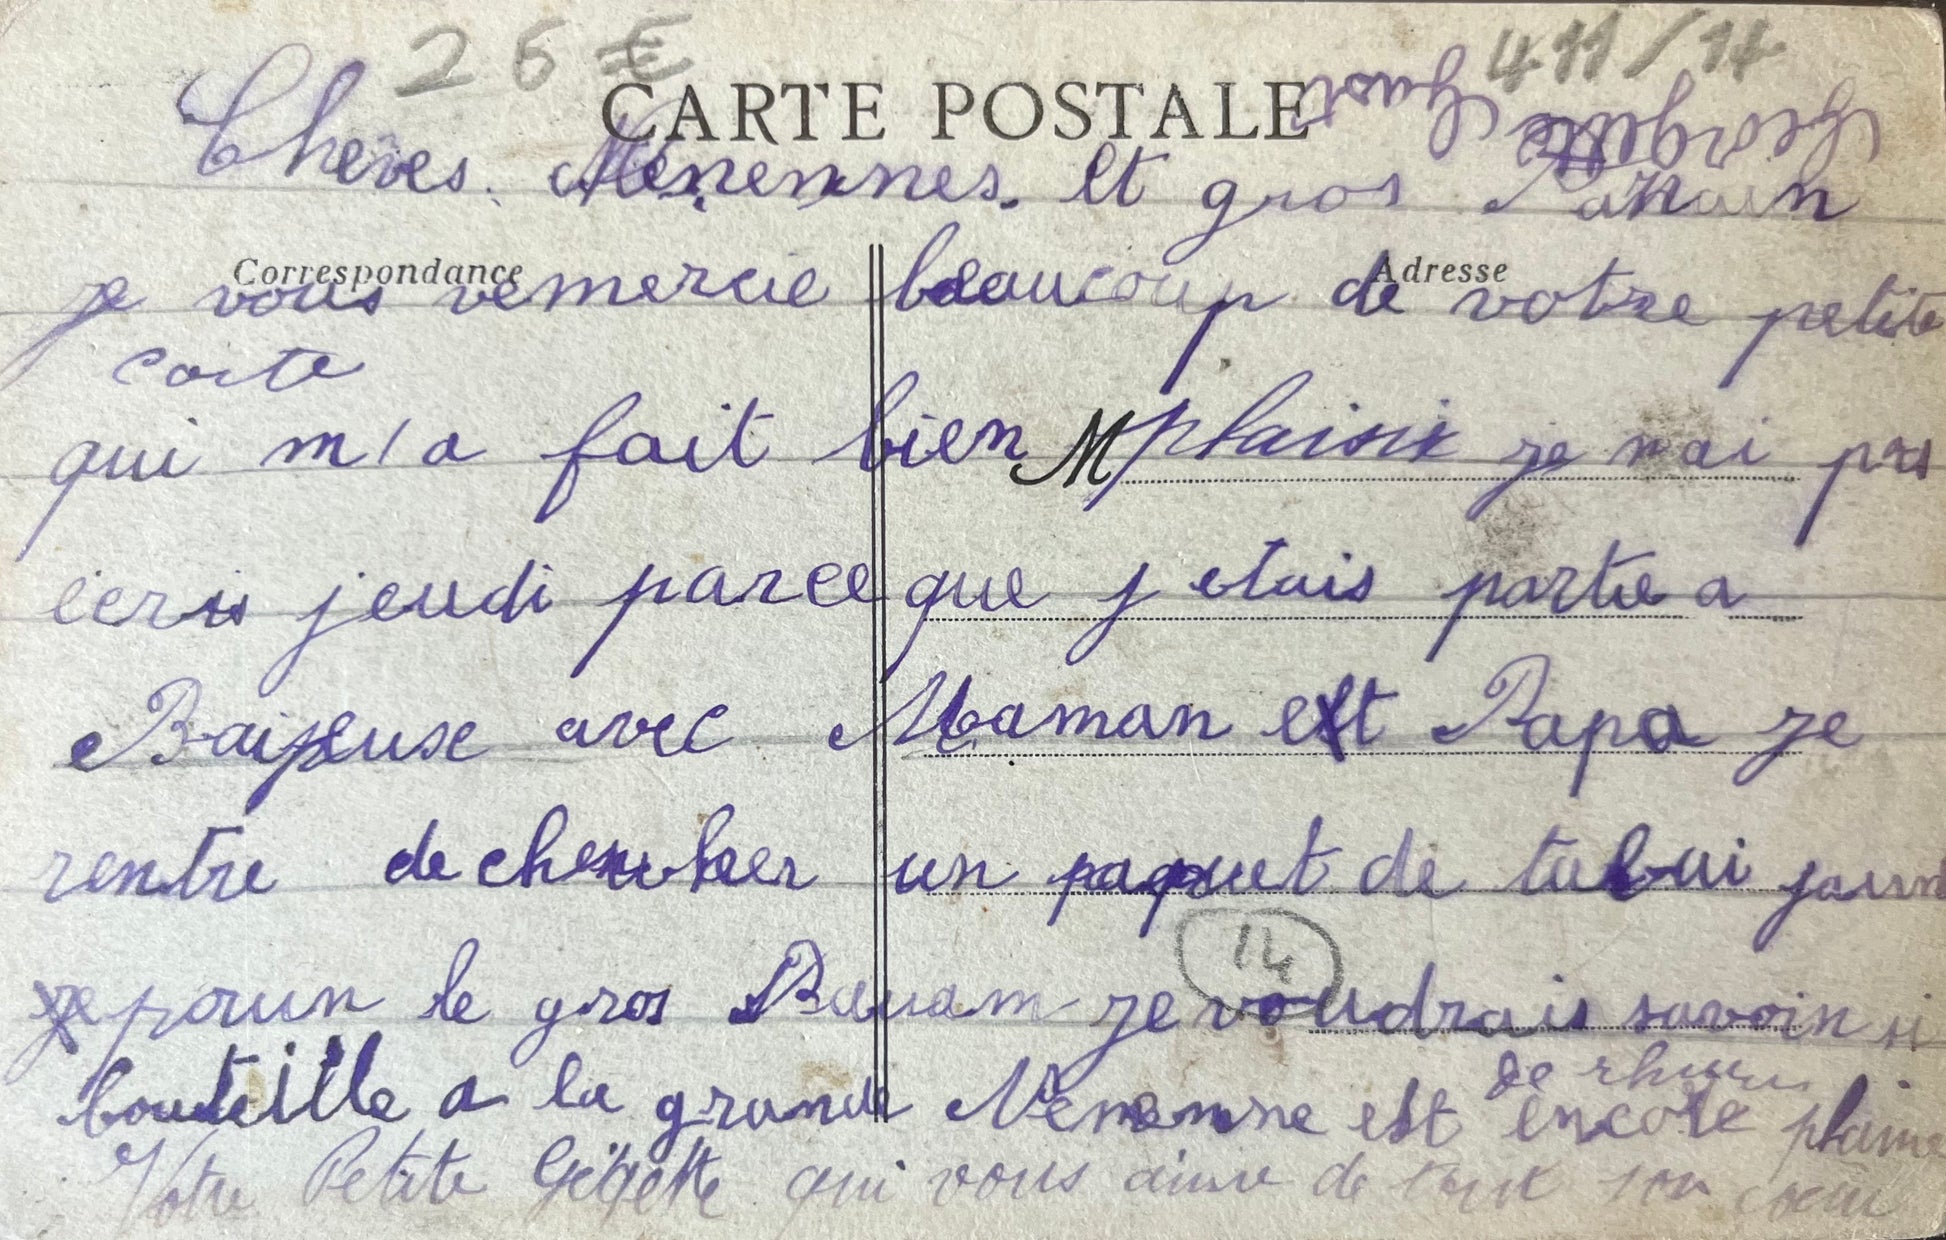 26 €
411/14
CARTE POSTALE
Georgette
Chères. Nénennes. Et gros Parrain
Correspondance
Adresse
je vous remercie beaucoup de votre petite
carte
qui m'a fait bien plaisir je n ai pas
M
écris jeudi parce que j etais partie a
avec Maman et Papa je
rentre de un paquet de
je le gros je voudrais savoir si
14
de rhum
bouteille a la grande Nénenne est encore plaine
Votre Petite Gégette qui vous aime de tout son coeur